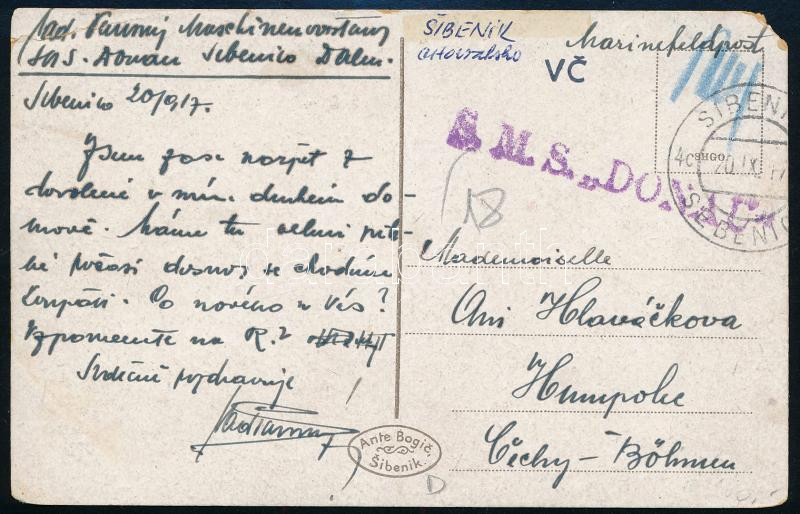 Maschinenvorstand
S.M.S. Donau Sebenico Dalm.
Sebenico 20/9 17.
Jsem zase nazpět z
dovolené v mém druhém do-
mově. Máme tu velmi pěk-
né počasí dosnos se chodíme
koupati. Co nového u Vás?
Vzpomeňte na R. 2
Srdečně pozdravuje
Ante Bogić,
Šibenik.
ŠIBENIK
CHORVATSKO
VČ
Marinefeldpost
S.M.S. „DONAU"
ŠIBENI
20.IX.17
SEBENICO
18
Mademoiselle
Ani Hlaváčkova
Humpolec
Čechy-Böhmen
D